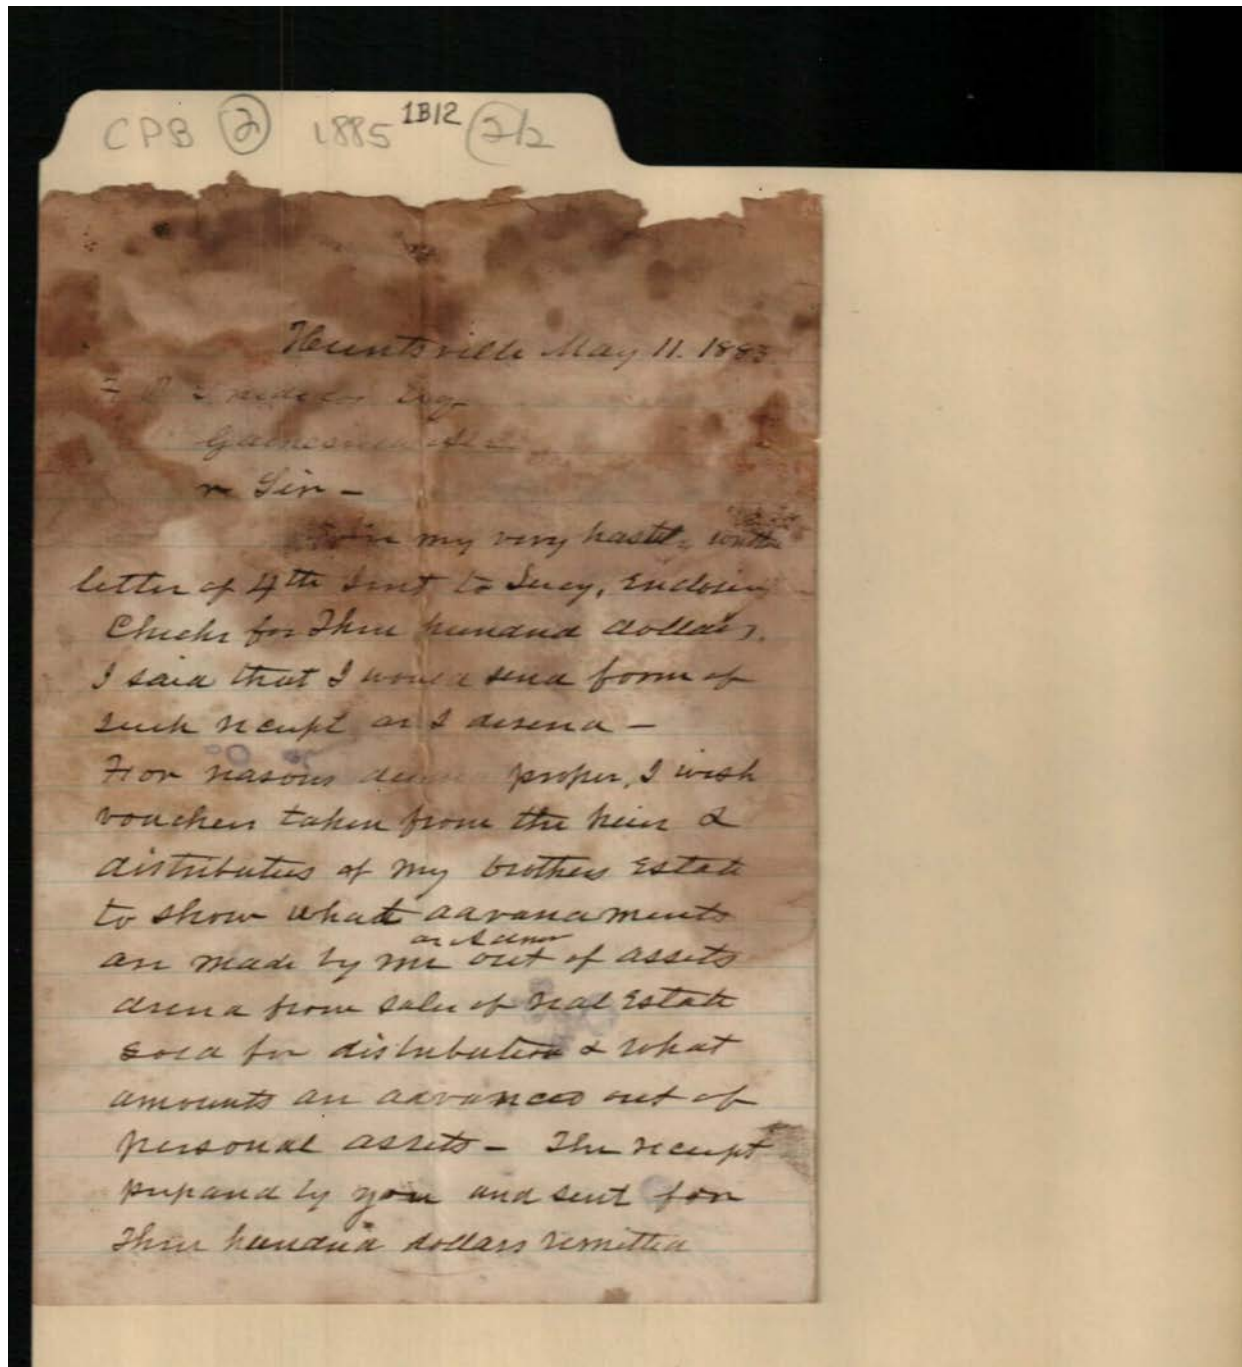 CPB ② 1885 1B12 2/2
Huntsville May 11. 1885
Esq
Sir —
In my very hastily
letter of 4th Inst to Lucy, Enclosing
Checks for Three hundred dollars,
I said that I would send form of
such receipt as I desired —
For reasons proper, I wish
vouchers taken from the heirs &
distributees of my brothers Estate
to show what advancements
as Admr
are made by me out of assets
derived from sales of real Estate
sold for distribution & what
amounts are advanced out of
personal assets — The receipt
prepared by you and sent for
Three hundred dollars remitted